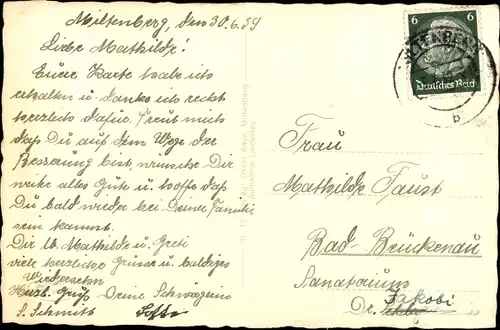 Miltenberg, den 30.6.39
Liebe Mathilde!
Eure Karte habe ich
erhalten u. danke ich recht
herzlich dafür. Freut mich
daß Du auf dem Wege der
Besserung bist, wünsche Dir
weite alles Gute u. hoffe daß
Du bald wieder bei Deiner Familie
sein kannst.
Dir lb. Mathilde u. Greti
viele herzliche Grüsse u. baldiges
Wiedersehen
Herzl. Gruß Deine Schwägerin
S. Schmitt
6 6
Deutsches Reich
MILTENBERG
b
Frau
Mathilde Faust
Bad-Brückenau
Sanatorium
Dr. Jakobi